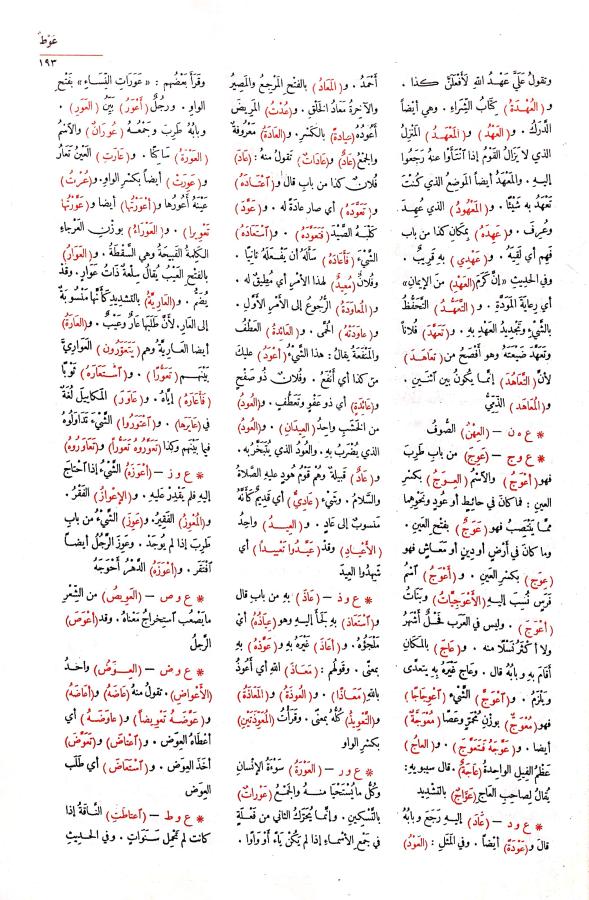 عوط
١٩٣
وتقول عليَّ عهد الله لأفعلنَّ كذا .
و (العُهْدَة) كتاب الشراء . وهي أيضاً
الدَّرَك . و (العَهْد) و (المَعْهَد) المنزل
الذي لا يزال القوم إذا انتأوا عنه رجعوا
إليه . والمعهد أيضاً الموضع الذي كنت
تعهد به شيئاً . و (المعهود) الذي عُهِد
وعُرِف . و (عَهِدَه) بمكان كذا من باب
فهم أي لقيه . و (عَهْدي) به قريب .
وفي الحديث «إن كرم (العهد) من الإيمان»
أي رعاية المودة . و (التَّعَهُّد) التحفظ
بالشيء وتجديد العهد به . و (تعهَّد) فلانا
وتعهد ضيعته وهو أفصح من (تعاهد)
لأن (التعاهد) إنما يكون بين اثنين .
و (المعاهَد) الذِّمِّيّ
* ع هـ ن – (العِهْن) الصوف
* ع و ج – (عَوِجَ) من باب طرب
فهو (أعوج) والاسم (العِوَج) بكسر
العين : فما كان في حائط أو عود ونحوهما
مما ينتصب فهو (عَوَج) بفتح العين .
وما كان في أرض أو دين أو معاش فهو
(عِوَج) بكسر العين . و (أعوج) اسم
فرس نُسب إليه (الأعوجيات) وبنات
(أعوج) . وليس في العرب فحل أشهر
ولا أكثر نسلا منه . و (عاج) بالمكان
أقام به وبابه قال . وعاج غيره به يتعدى
ويلزم . و (اعوجَّ) الشيء (اعوجاجا)
فهو (معوجّ) بوزن محمرّ وعصا (معوجَّة)
أيضا . و (عوَّجه فتعوَّج) . و (العاج)
عظم الفيل الواحدة (عاجة) . قال سيبويه:
يقال لصاحب العاج (عوَّاج) بالتشديد
* ع و د – (عاد) إليه رجع وبابه
قال و (عودة) أيضاً . وفي المثل : (العَوْد)
أحمد . و (المعاد) بالفتح المرجع والمصير
والآخرة معاد الخلق . و (عُدْت) المريض
أعوده (عيادة) بالكسر . و (العادة) معروفة
والجمع (عاد) و (عادات) تقول منه : (عاد)
فلان كذا من باب قال و (اعتاده)
و (تعوَّده) أي صار عادة له . و (عوَّد)
كلبه الصيد (فتعوَّده) . و (استعاده)
الشيء (فأعاده) سأله أن يفعله ثانيا .
وفلان (مُعيد) لهذا الأمر أي مطيق له .
و (المعاودة) الرجوع إلى الأمر الأول .
و (عاودته) الحمى . و (العائدة) العطف
والمنفعة يقال : هذا الشيء (أعود) عليك
من كذا أي أنفع . وفلان ذو صفح
و (عائدة) أي ذو عفو وتعطف . و (العود)
من الخشب واحد (العيدان) . و (العود)
الذي يضرب به . والعود الذي يتبخر به .
و (عاد) قبيلة وهم قوم هود عليه الصلاة
والسلام . وشيء (عاديّ) أي قديم كأنه
منسوب إلى عاد . و (العيد) واحد
(الأعياد) وقد (عيَّدوا تعييدا) أي
شهدوا العيد
* ع و ذ – (عاذ) به من باب قال
و (استعاذ) به لجأ إليه وهو (عياذه) أي
ملجؤه . و (أعاذ) غيره به و (عوَّذه) به
بمعنى . وقولهم : (معاذ) الله أي أعوذ
بالله (معاذا) . و (العوذة) و (المعاذة)
و (التعويذ) كله بمعنى . وقرأت (المعوِّذتين)
بكسر الواو
* ع و ر – (العورة) سوءة الإنسان
وكل ما يستحيا منه والجمع (عورات)
بالتسكين . وإنما يحرك الثاني من فعلة
في جمع الأسماء إذا لم يكن ياء أو واوا .
وقرأ بعضهم : «عورات النساء» بفتح
الواو . ورجل (أعور) بيّن (العَوَر) .
وبابه طرب وجمعه (عوران) والاسم
(العورة) ساكنا . و (عارت) العين تعار
و (عورت) أيضاً بكسر الواو . و (عُرْت)
عينه أعورها و (أعورتها) أيضا و (عوَّرتها
تعويرا) . و (العوراء) بوزن العرجاء
الكلمة القبيحة وهي السقطة . و (العَوار)
بالفتح العيب يقال سلعة ذات عوار . وقد
يضم . و (العاريَّة) بالتشديد كأنها منسوبة
إلى العار لأن طلبها عار وعيب . و (العارة)
أيضا العارية وهم (يتعوَّرون) العواريّ
بينهم (تعوُّرا) . و (استعاره) ثوبا
(فأعاره) إياه . و (عاور) المكاييل لغة
في (عايرها) . و (اعتوروا) الشيء تداولوه
فيما بينهم وكذا (تعوَّروه تعوُّرا) و (تعاوروه)
* ع و ز – (أعوزه) الشيء إذا احتاج
إليه فلم يقدر عليه . و (الإعواز) الفقر .
و (المُعْوِز) الفقير . و (عوز) الشيء من باب
طرب إذا لم يوجد . وعوز الرجل أيضاً
افتقر . و (أعوزه) الدهر أحوجه
* ع و ص – (العويص) من الشعر
ما يصعب استخراج معناه . وقد (أعوص)
الرجل
* ع و ض – (العِوَض) واحد
(الأعواض) . تقول منه (عاضه) و (أعاضه)
و (عوَّضه تعويضاً) و (عاوضه) أي
أعطاه العوض . و (اعتاض) و (تعوَّض)
أخذ العوض . و (استعاض) أي طلب
العوض
* ع و ط – (اعتاطت) الناقة إذا
كانت لم تحمل سنوات . وفي الحديث